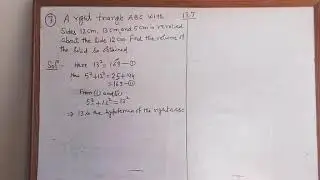 7 A right triangle ABC with 13.7
sides 12cm, 13cm and 5cm is revolved
about the side 12cm. Find the volume
of the solid so obtained
Solⁿ:- Here 13² = 169 —①
Now 5²+12² = 25+144
= 169 —②
From ① and ②
5²+12² = 13²
⇒ 13 is the hypotenuse of the right ABC